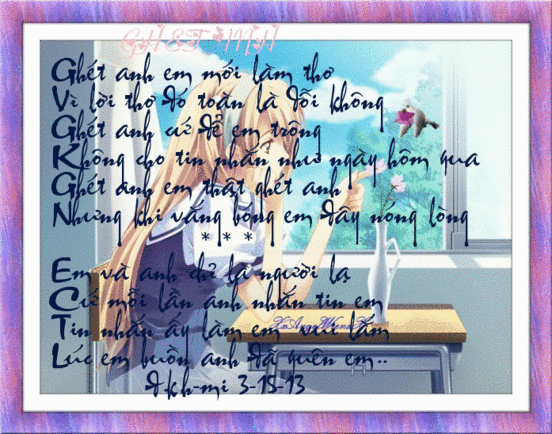 GHÉT ANH
Ghét anh em mới làm thơ
Vì lời thơ đó toàn là dối không
Ghét anh cứ để em trông
Không cho tin nhắn như ngày hôm qua
Ghét anh em thật ghét anh
Nhưng khi vắng bóng em đây nóng lòng
* * *
Em và anh chỉ là người lạ
Cứ mỗi lần anh nhắn tin em
Tin nhắn ấy làm em vui lắm
Lúc em buồn anh đã quên em..
đkh-mi 3-15-13